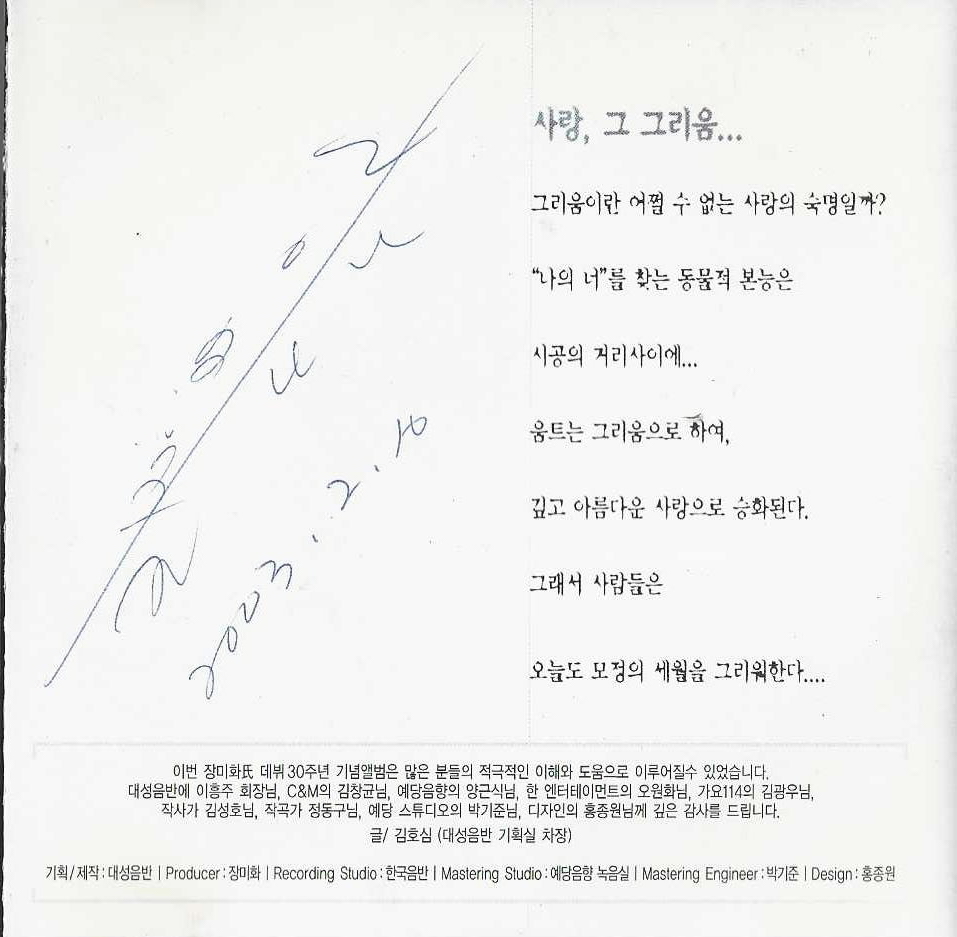 사랑, 그 그리움...
그리움이란 어쩔 수 없는 사랑의 숙명일까?
“나의 너”를 찾는 동물적 본능은
시공의 거리사이에...
움트는 그리움으로 하여,
깊고 아름다운 사랑으로 승화된다.
그래서 사람들은
오늘도 모정의 세월을 그리워한다....
2003. 2. 10
이번 장미화氏 데뷔 30주년 기념앨범은 많은 분들의 적극적인 이해와 도움으로 이루어질수 있었습니다.
대성음반에 이흥주 회장님, C&M의 김창균님, 예당음향의 양근식님, 한 엔터테이먼트의 오원화님, 가요114의 김광우님,
작사가 김성호님, 작곡가 정동구님, 예당 스튜디오의 박기준님, 디자인의 홍종원님께 깊은 감사를 드립니다.
글/ 김호심 (대성음반 기획실 차장)
기획/제작 : 대성음반 | Producer : 장미화 | Recording Studio : 한국음반 | Mastering Studio : 예당음향 녹음실 | Mastering Engineer : 박기준 | Design : 홍종원